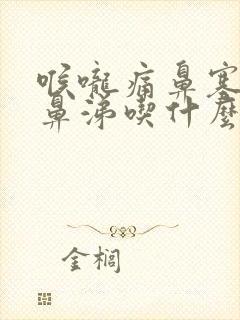 喉嚨痛鼻塞
鼻涕喫什麼
金櫚